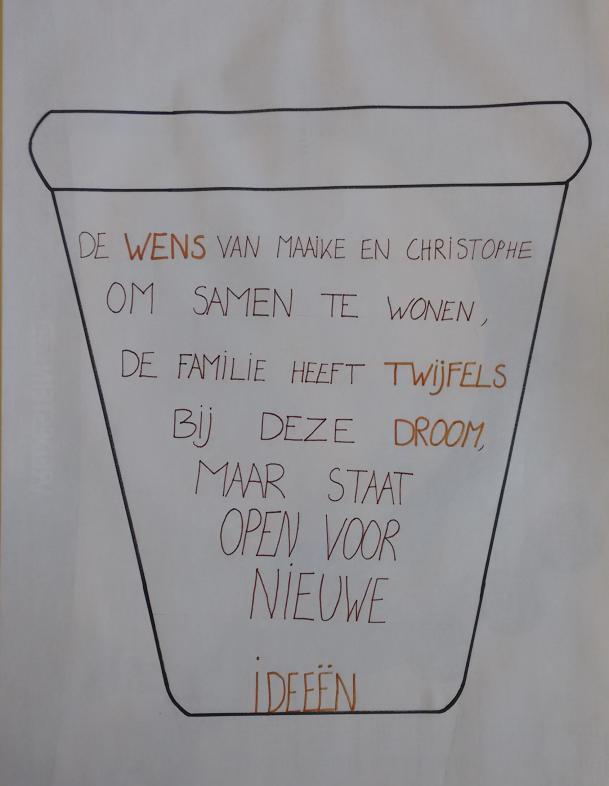 DE WENS VAN MAAIKE EN CHRISTOPHE
OM SAMEN TE WONEN,
DE FAMILIE HEEFT TWIJFELS
BIJ DEZE DROOM,
MAAR STAAT
OPEN VOOR
NIEUWE
IDEEËN